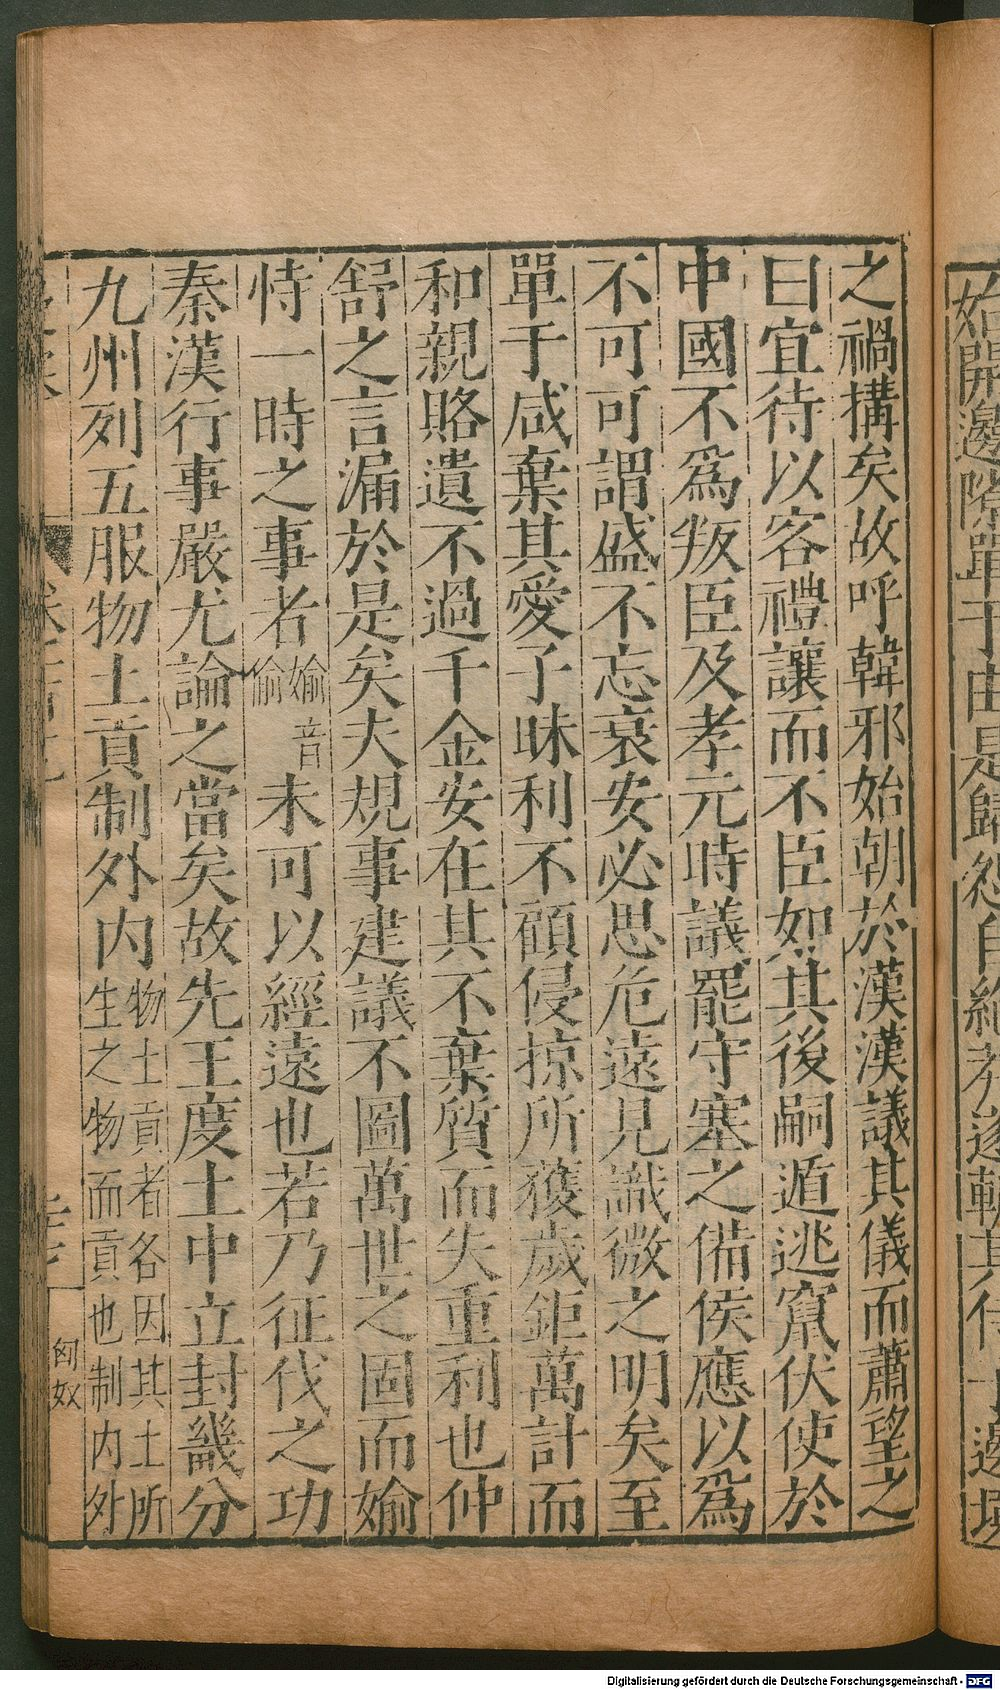 之禍搆矣故呼韓邪始朝於漢漢議其儀而蕭望之
曰宜待以客禮讓而不臣如其後嗣遁逃竄伏使於
中國不爲叛臣及孝元時議罷守塞之備侯應以爲
不可可謂盛不忘衰安必思危遠見識微之明矣至
單于咸棄其愛子昧利不顧侵掠所獲歲鉅萬計而
和親賂遺不過千金安在其不棄質而失重利也仲
舒之言漏於是矣夫規事建議不圖萬世之固而媮
恃一時之事者媮音偷未可以經遠也若乃征伐之功
秦漢行事嚴尤論之當矣故先王度土中立封畿分
九州列五服物土貢制外内物土貢者各因其土所生之物而貢也制内外
匈奴
始開邊隙單于由是歸怨自絕
邊
Digitalisierung gefördert durch die Deutsche Forschungsgemeinschaft - DFG